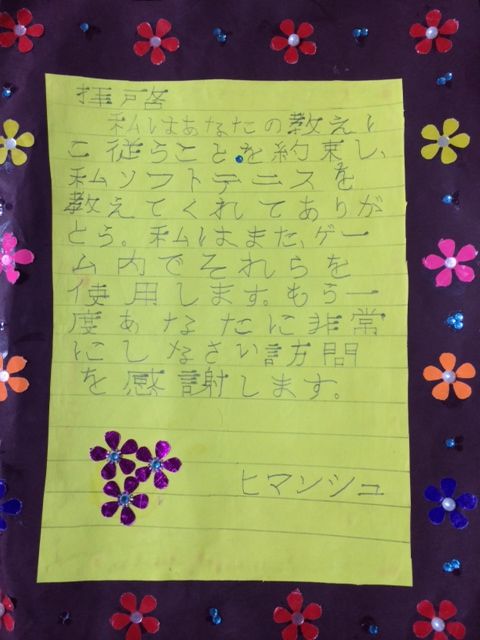 拝啓
私はあなたの教えに
こ従うことを約束し、
私ソフトテニスを
教えてくれてありが
とう。私はまた、ゲー
ム内でそれらを
使用します。もう一
度あなたに非常
にしなさい訪問
を感謝します。
ヒマンシュ